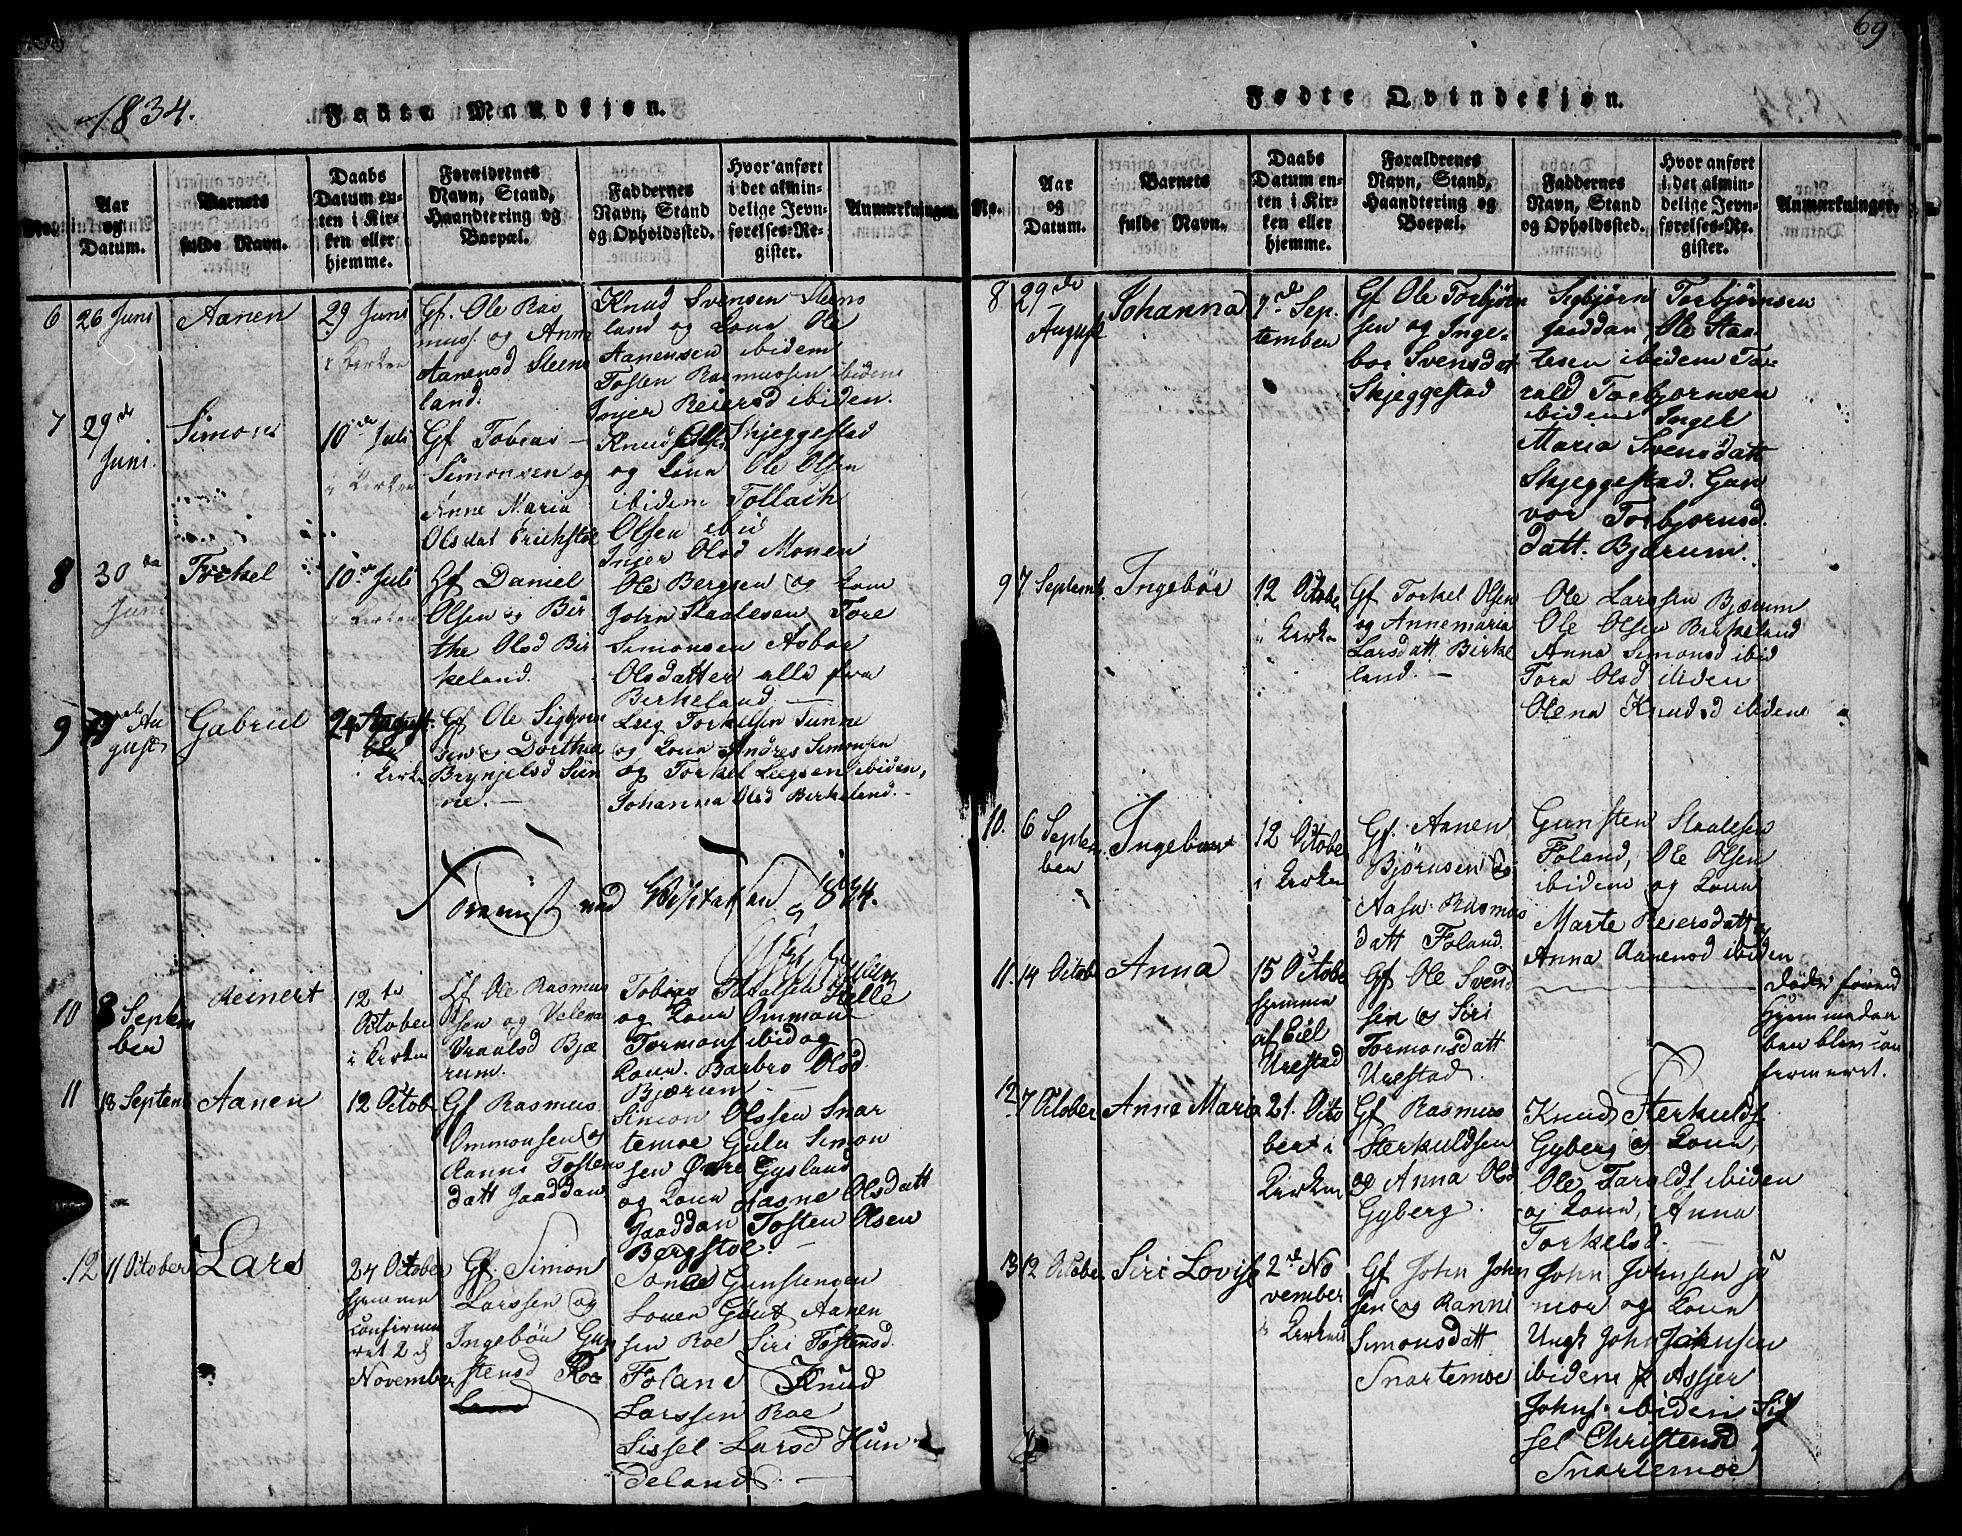 1834.
Fødte Mandkjøn.
No.
Aar og Datum.
Barnets fulde Navn.
Daabs Datum enten i Kirken eller hjemme.
Forældrenes Navn, Stand, Haandtering og Boepæl.
Faddernes Navn, Stand og Opholdssted.
Hvor anført i det almindelige Jevnførelses-Register.
Anmærkninger.
6
26 Juni
Aanen
29 Juni
i Kirken
Gf. Ole Ras
muss. og Anna
Aanensd Steens
land.
Knud Svensen Steens
land og Kone Ole
Aanensen ibidem
Tosten Rasmussen ibidem
Injer Reiersd ibiden.
7
29de
Juni.
Simon
10de Juli
i Kirken
Gf Tobias
Simonsen og
Anne Maria
Olsdat Erichstøe
Knud Ols Skjeggestad
og Kone Ole Olsen
ibidem Tollach
Olsen ibid
Injer Olsd Monen
8
30
Juni
Torkel
10de Juli
i Kirken
Gf Daniel
Olsen og Bir
the Olsd Bir
keland.
Ole Bergsen og Kone
John Staalesen Tore
Simonsen Asbor
Olsdatter alle fra
Birkeland
9
Au
gust
Gabriel
24 August
Kirke
Gf Ole Sigbjorn
sen og Dorthea
Brynjelsd Sun
ne.
Leeg Torkelsen Sunne
og Kone Andres Simonsen
og Torkel Leegsen ibiden,
Johanna Olsd Birkeland.
ved Visitatsen 1834.
10
8 Septem
ber
Reinert
12te
October
i Kirken
Gf Ole Rasmus
sen og Velena
Vraalsd Bjæ
rum.
Tobias Helle
og Kone Ommon
Tormons ibid og
Kone. Barbro Olsd
Bjærum
11
18 Septem
Aanen
12 Octob
Gf Rasmus
Ommonsen og
Ranni Tostens
datt Jaaddan
Simon Olssen Snar
temoe Gulu Simon
sen Øvre Gysland
og Kone Aasne Olsdatt
Jaaddan Tosten Olsen
Bergstøe.
12
11 October
Lars
24 October
hjemme
confirme
ret 2d
November
Gf. Simon
Larssen og
Ingebor Gun
stensd Roe
Jonas Gunstensen
Gout Aanen
sen Roe Siri Tostensd.
Foland Knud
Larssen Roe
Sissel Larsd Hun
deland.
69.
Fødte Qvindekjøn.
No.
Aar og Datum.
Barnets fulde Navn.
Daabs Datum enten i Kirken eller hjemme.
Forældrenes Navn, Stand, Haandtering og Boepæl.
Faddernes Navn, Stand og Opholdssted.
Hvor anført i det almindelige Jevnførelses-Register.
Anmærkninger.
8
29de
August
Johanna
7de Sep.
tember
Gf Ole Torbjørn
sen og Inge-
bor Svensdat
Skjeggestad
Sigbjørn Torbjørnsen
Jaaddan Ole Staa
lesen ibidem Tar
rald Torbjornsen
ibidem Ingel
Maria Svensdatt
Skjeggestad. Gun
vor Torbjornsd.
datt. Bjærum.
9
7 Septemb.
Ingebor
12 Octobe
i Kirken
Gf Torkel Olsen
og Annemaria
Larsdatt Birke
land.
Ole Larssen Bjærum
Ole Olsen Birkeland
Anna Simonsd ibid
Tora Olsd ibiden
Olena Knudsd ibidem
10.
6 Septem
ber
Ingebor
12 Octobe
i Kirken
Gf. Aanen
Bjørnsen og
Aasa Rasmus
datt Foland.
Gunsten Staalesen
Foland, Ole Olsen
ibidem og Kone
Marte Reiersdatt og
Anna Aanensd ibiden
11.
14 Octob
Anna
15 Octobe
hjemme
af Eiel
Urestad
Gf Ole Svend
sen og Siri
Tormonsdatt
Urestad.
døde førend
Hjemmedaa
ben blev con
firmeret.
12
7 October
Anne Maria
21. Octo
ber i
Kirken
Gf Rasmus
Sterkuldsen
og Anna Olsd
Gyberg.
Knud Sterkulds
Gyberg og Kone,
Ole Taralds ibiden
og Kone, Anna
Torkelsd.
13
12 October
Siri Lovise
2d No
vember
i Kirken
Gf John John
sen og Ranni
Simonsdatt
Snartemoe
John Johnsen
moe og Kone
Ungk John Johnsen
ibidem Asjer
Johns. ibiden Sis
sel Christensd
Snartemoe